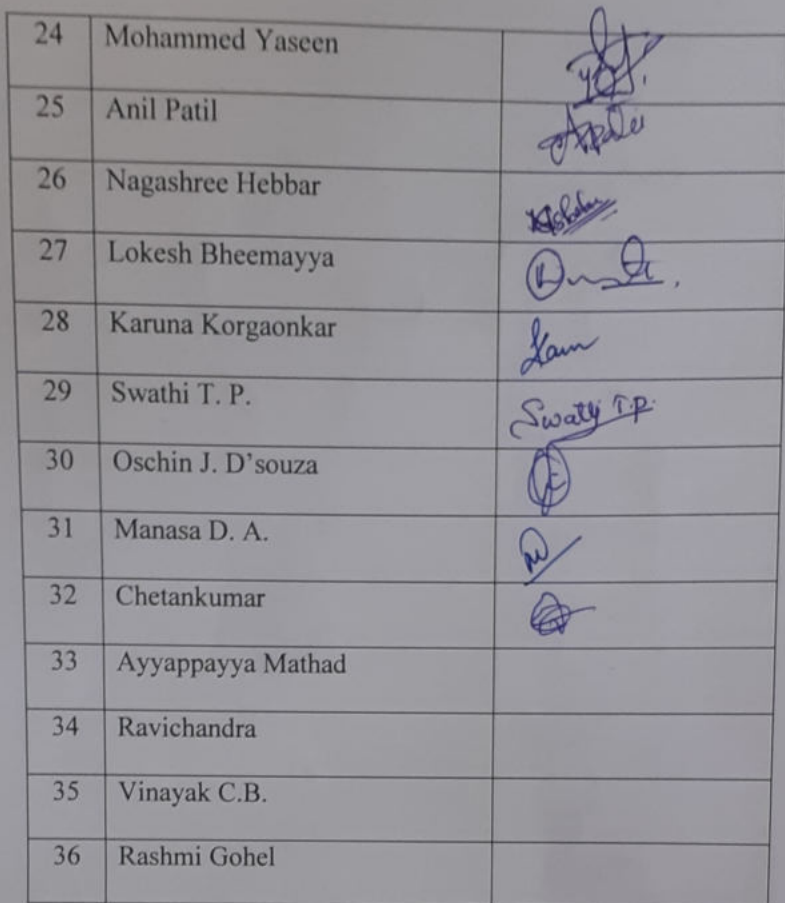 24 Mohammed Yaseen
25 Anil Patil
26 Nagashree Hebbar
27 Lokesh Bheemayya
28 Karuna Korgaonkar
29 Swathi T. P. Swathi T.P.
30 Oschin J. D'souza
31 Manasa D. A.
32 Chetankumar
33 Ayyappayya Mathad
34 Ravichandra
35 Vinayak C.B.
36 Rashmi Gohel